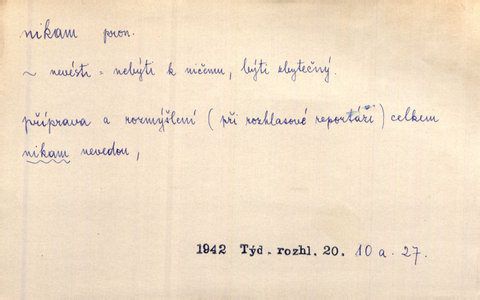 nikam pron.
~ nevésti = nebýti k ničemu, býti zbytečný.
příprava a rozmýšlení (při rozhlasové reportáži) celkem
nikam nevedou,
1942 Týd. rozhl. 20. 10 a. 27.